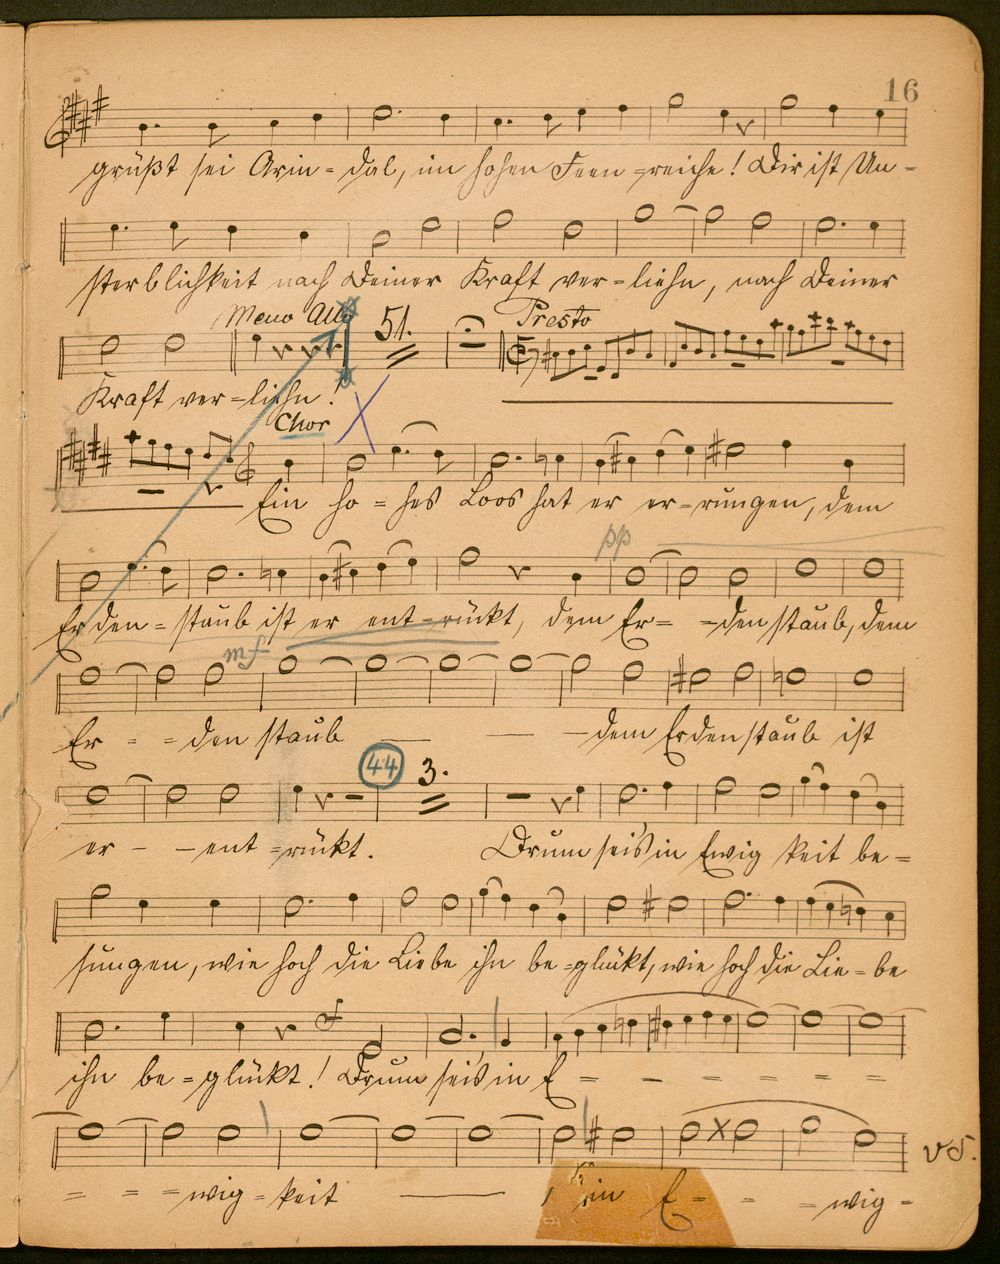 16
grüßt sei Arin-dal, im hohen Feen-reiche! Dir ist Un-
sterblichkeit nach Deiner Kraft ver-liehn, nach Deiner
Meno All? 51. Presto
Kraft ver-liehn!
Chor
Ein ho-hes Loos hat er er-rungen, dem
pp
Erden-staub ist er ent-rückt, dem Er- -den staub, dem
mf
Er - - den staub — — — dem Erdenstaub ist
44 3.
er - - ent-rückt. Drum sei's in Ewig keit be-
sungen, wie hoch die Liebe ihn be-glückt, wie hoch die Lie-be
ihn be-glückt! Drum sei's in E - - - - - -
VS.
- - - wig-keit —— , in E - - - wig-